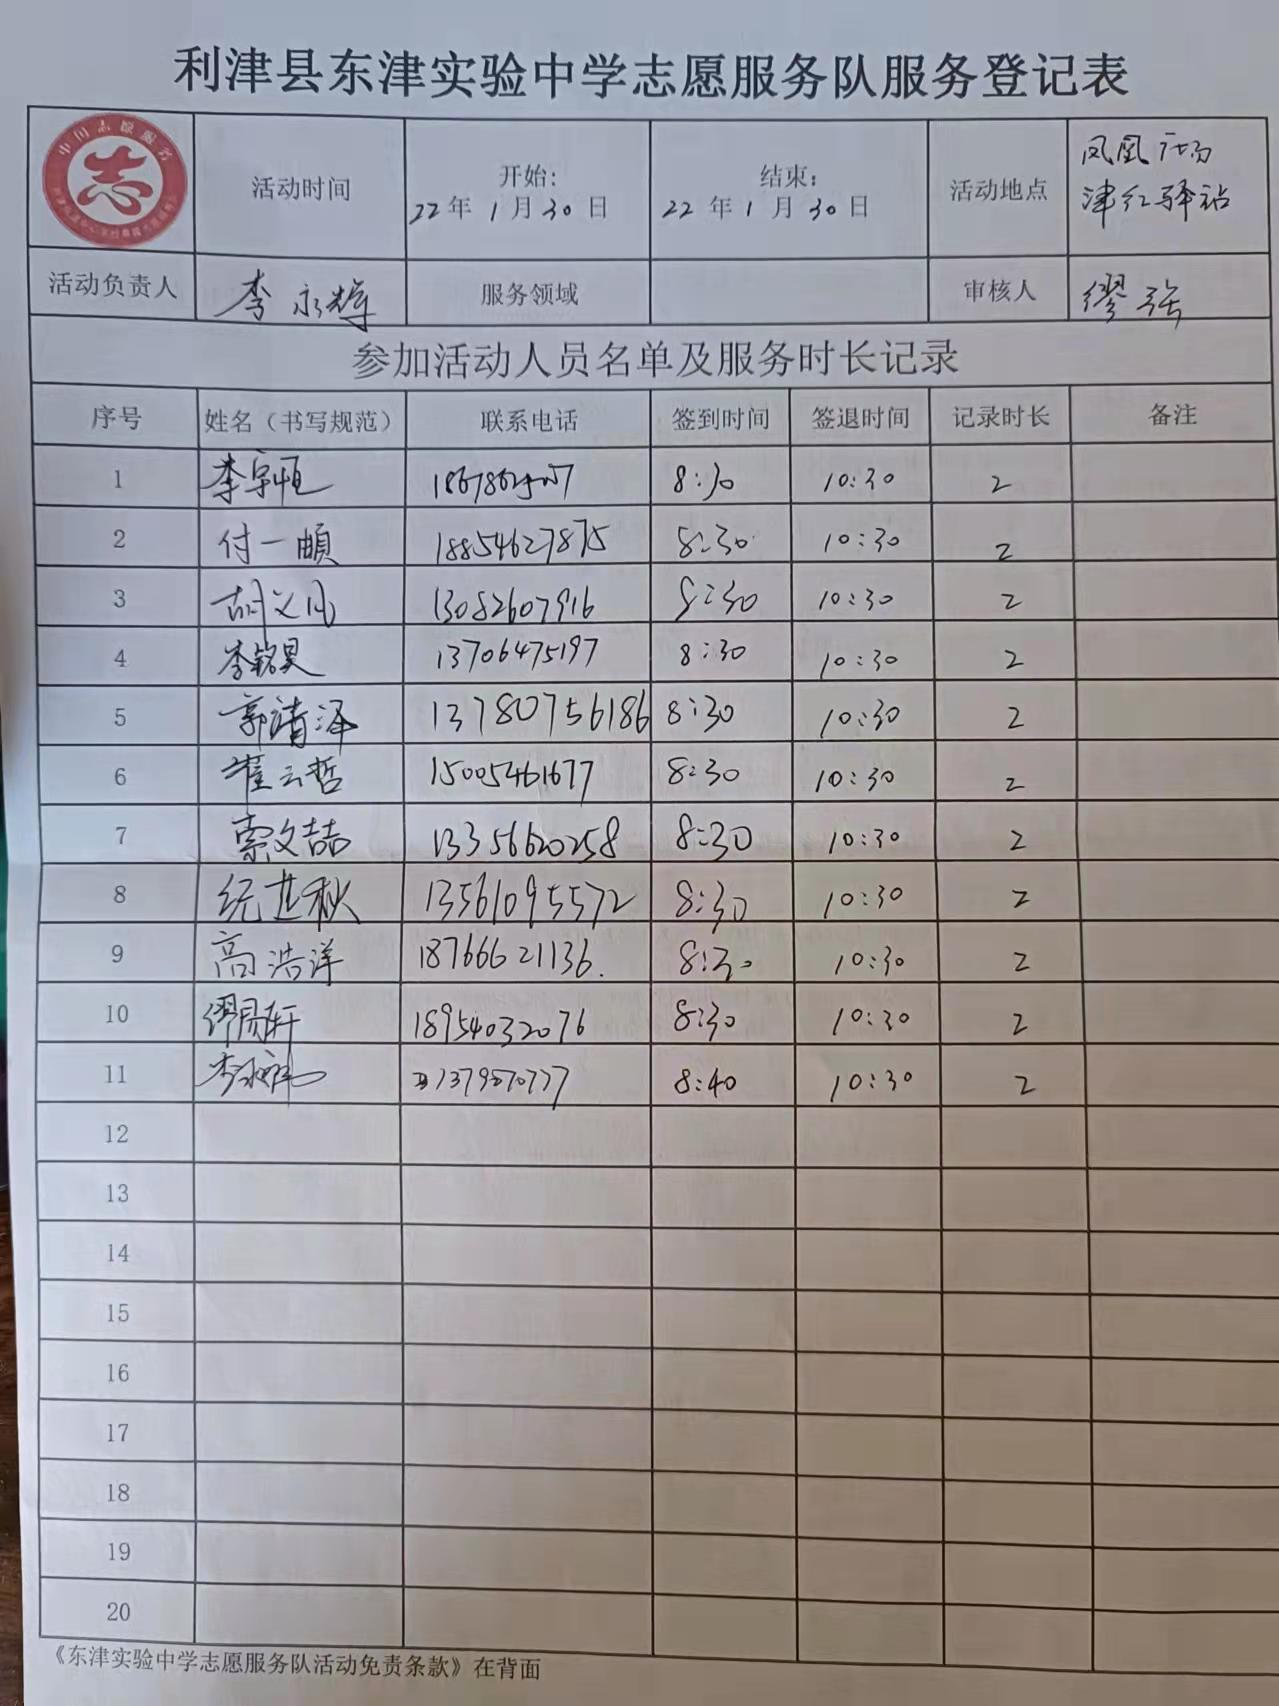 利津县东津实验中学志愿服务队服务登记表
中国志愿服务
志
活动时间
开始：
22年1月30日
结束：
22年1月30日
活动地点
凤凰广场
津红驿站
活动负责人 李永辉 服务领域 审核人 缪强
参加活动人员名单及服务时长记录
序号 姓名（书写规范） 联系电话 签到时间 签退时间 记录时长 备注
1 李宇恒 8:30 10:30 2
2 付一頔 18854627875 8:30 10:30 2
3 胡义凡 13082607916 8:30 10:30 2
4 李铭昊 13706475197 8:30 10:30 2
5 郭清泽 13780756186 8:30 10:30 2
6 崔云哲 15005461677 8:30 10:30 2
7 索文喆 13356620258 8:30 10:30 2
8 纪芷秋 13561095572 8:30 10:30 2
9 高浩洋 18766621136. 8:30 10:30 2
10 缪周轩 18954032076 8:30 10:30 2
11 8:40 10:30 2
12
13
14
15
16
17
18
19
20
《东津实验中学志愿服务队活动免责条款》在背面